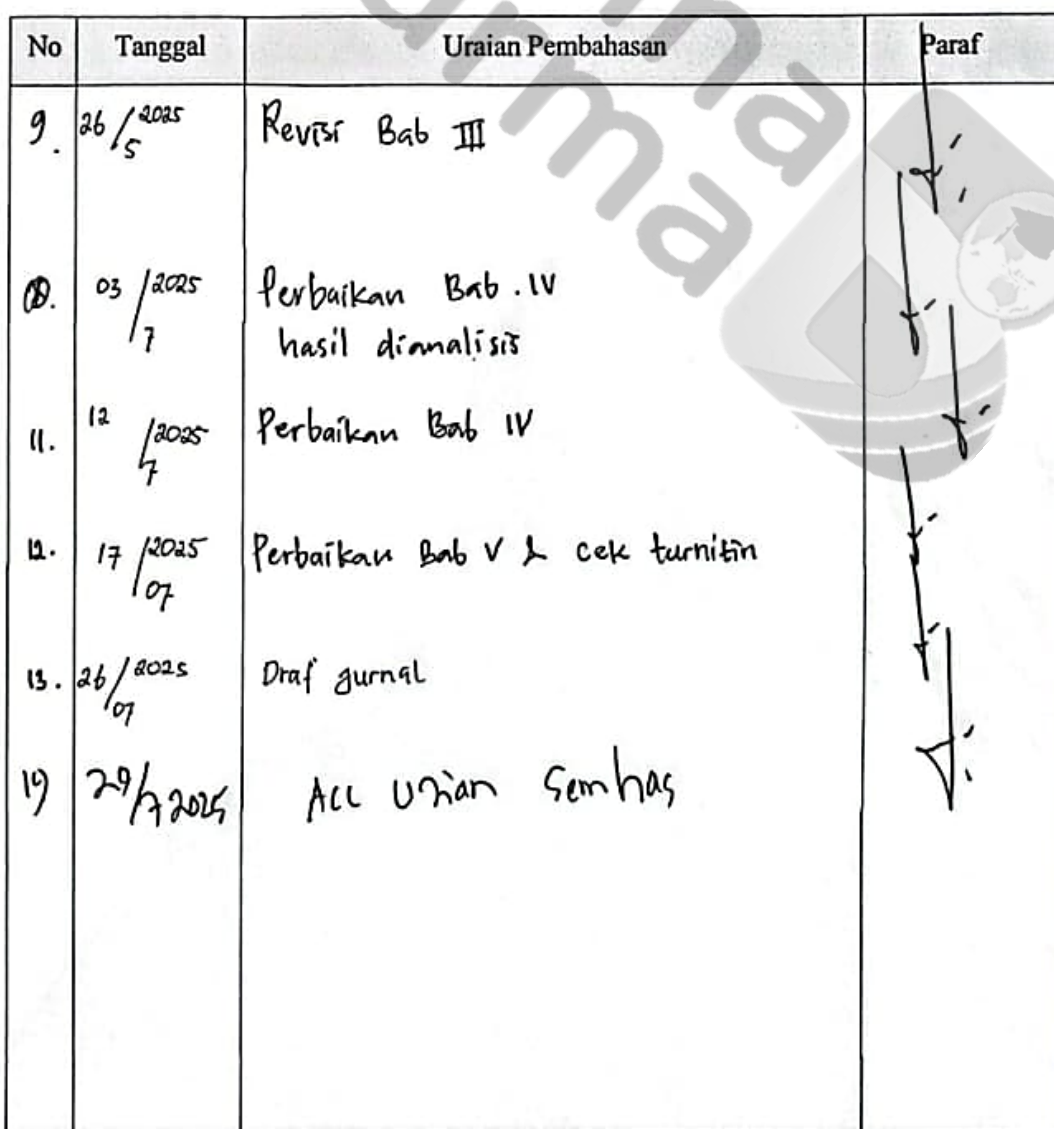 No Tanggal Uraian Pembahasan Paraf
9. 26/5 2025 Revisi Bab III
10. 03/7 2025 Perbaikan Bab. IV
hasil dianalisis
11. 12/7 2025 Perbaikan Bab IV
12. 17/07 2025 Perbaikan Bab V & cek turnitin
13. 26/07 2025 Draf Jurnal
14) 29/7 2025 ACC Ujian Semhas